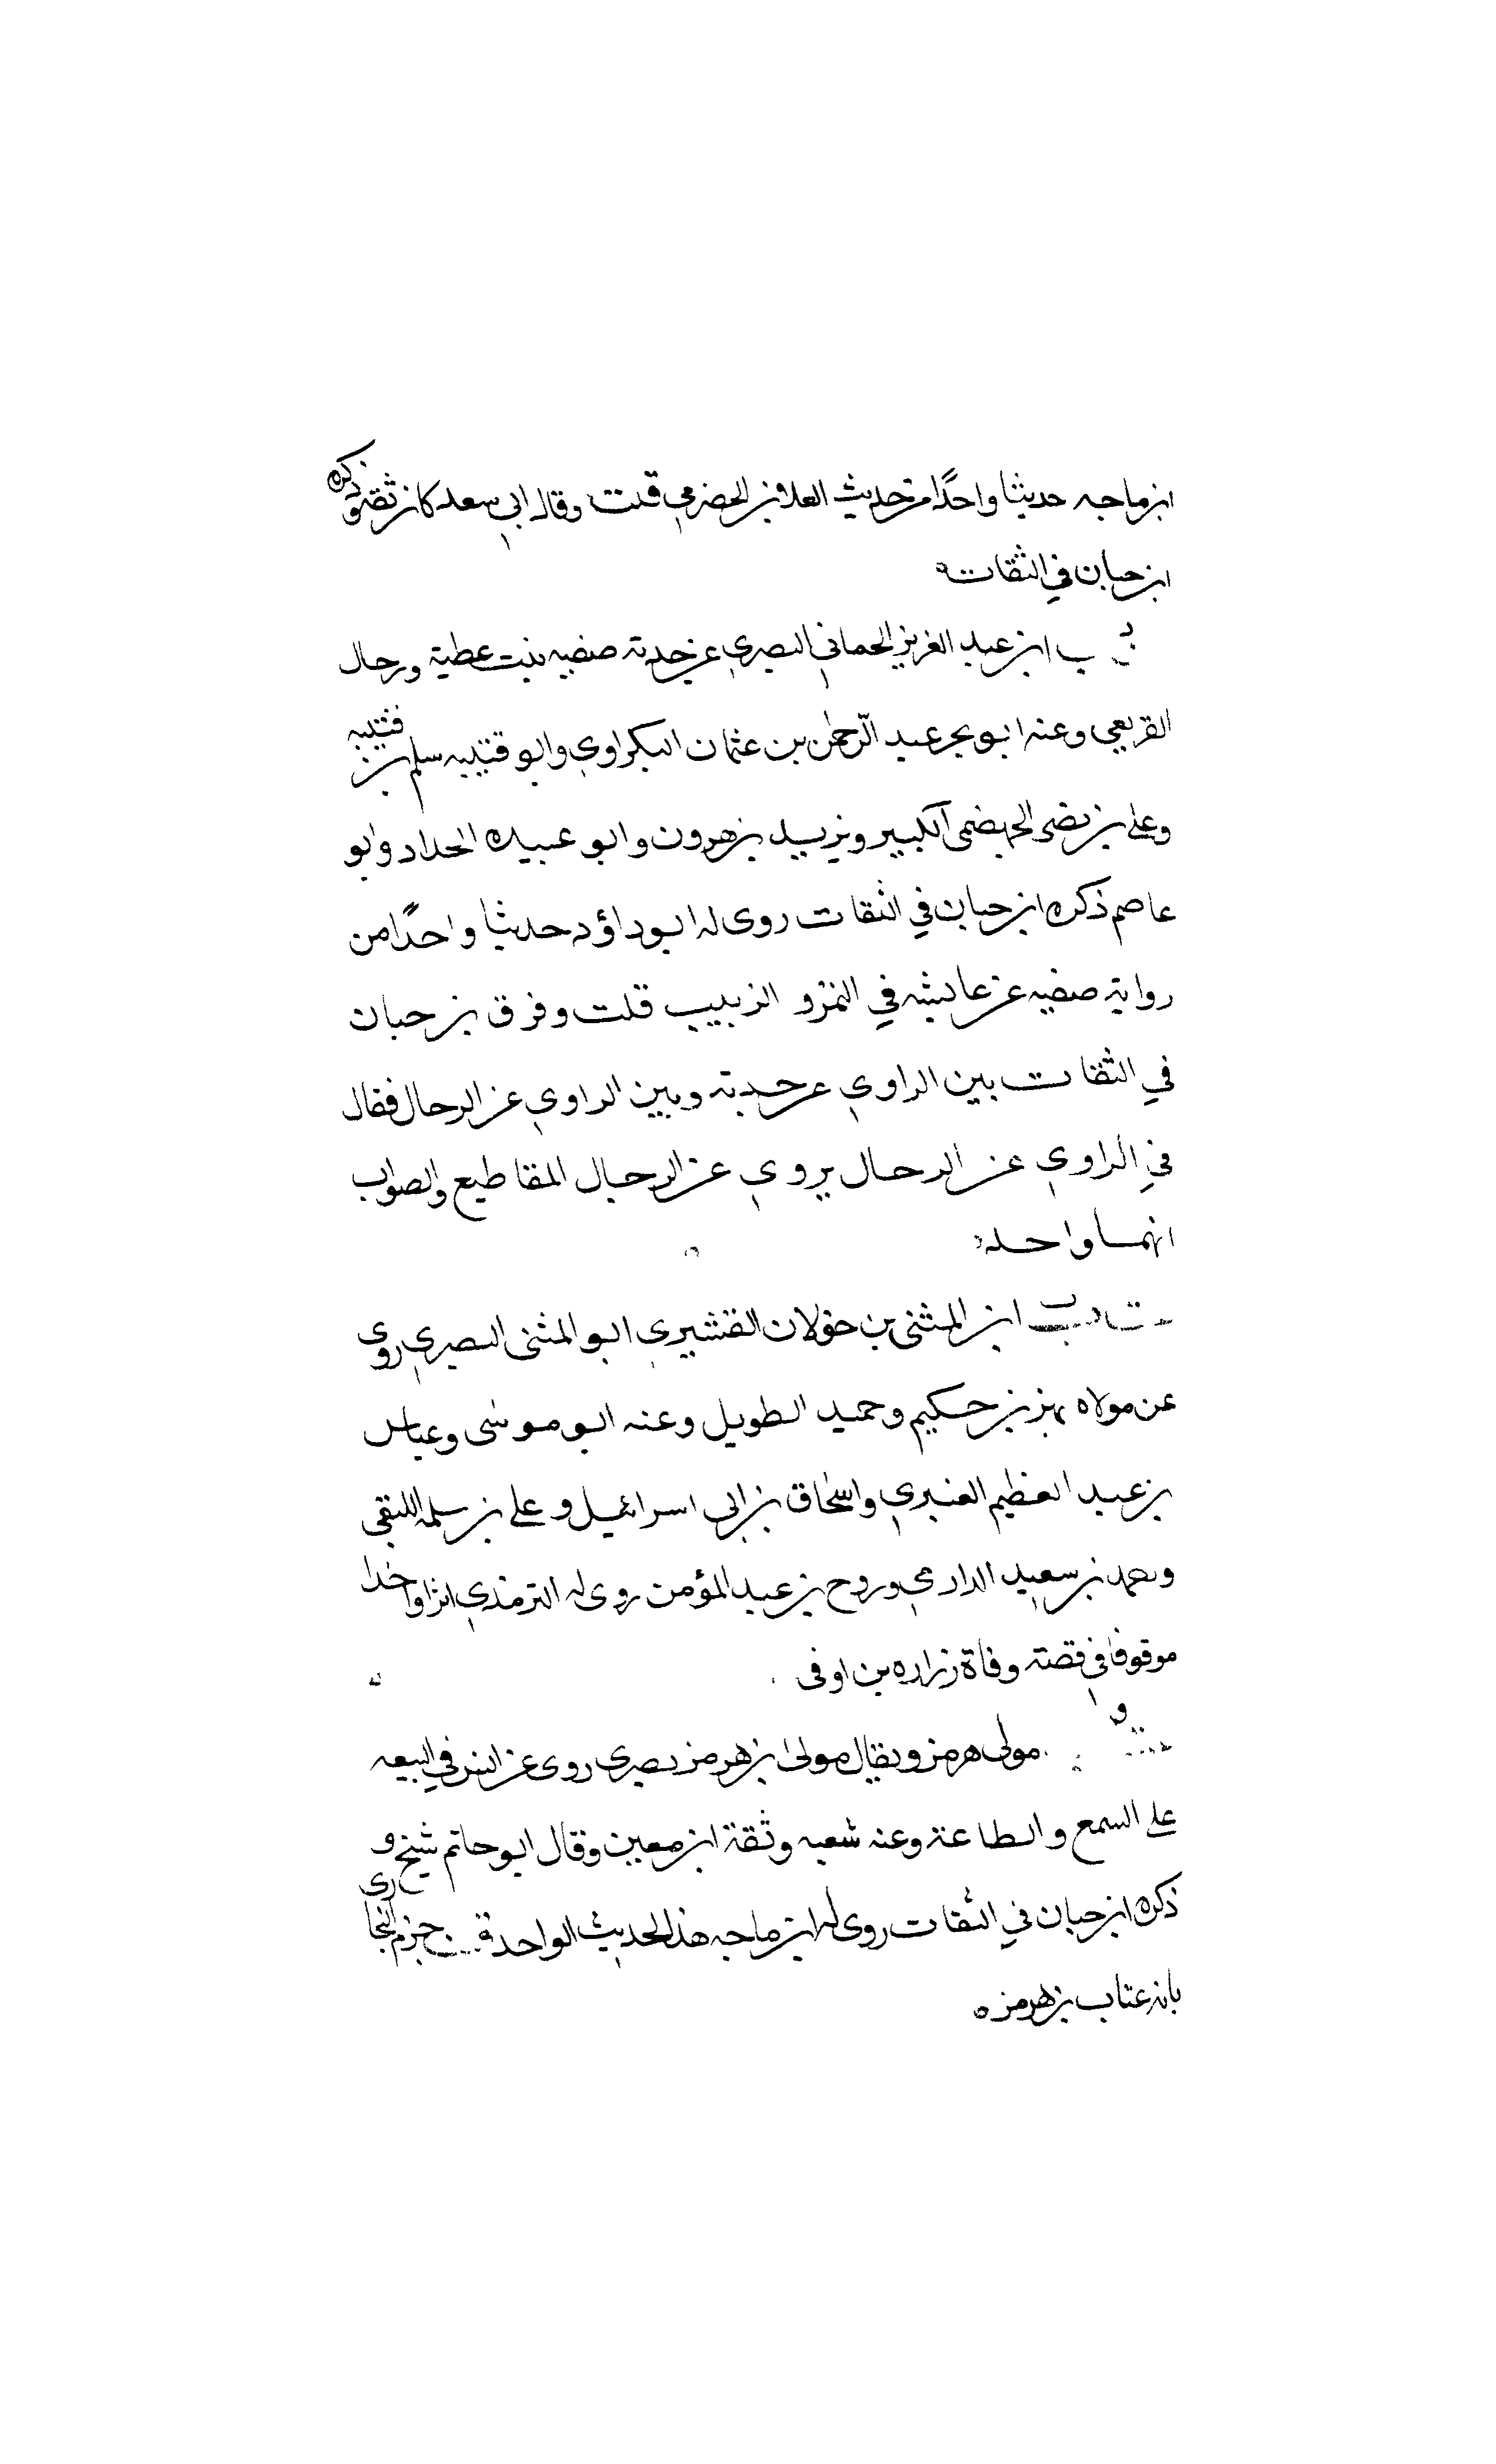 ابن ماجه حديثا واحدًا من حديث العلا بن الحضرمي قلت وقال ابن سعد كان ثقة وذكره
ابن حبان في الثقات
ابن عبد العزيز الحماني البصري عن جدته صفيه بنت عطية ورجال
القريعي وعنه ابو بحر عبد الرّحمن بن عثمان البكراوي وابو قتيبه سلم بن قتيبه
وعلي بن نصر الجهضمي الكبير ويزيد بن هرون وابو عبيده الحداد وابو
عاصم ذكره ابن حبان في الثقات روى له ابو داؤد حديثا واحدًا من
رواية صفيه عن عايشه في التمر و الزبيب قلت وفرق بن حبان
في الثقات بين الراوي عن جدته وبين الراوي عن الرحال فقال
في الراوي عن الرحال يروي عن الرحال المقاطيع والصواب
انهما واحد
ابن المثنى بن خولان القشيري ابو المثنى البصري روى
عن مولاه بهز بن حكيم وحميد الطويل وعنه ابو موسى وعباس
بن عبد العظيم العنبري واسحاق بن ابي اسرائيل وعلي بن سلمه اللبقي
بن سعيد الدارمي وروح بن عبد المؤمن روى له الترمذي اثرا واحدا
موقوفا في قصة وفاة زراره بن اوفى
مولى هرمز ويقال مولى بن هرمز بصري روى عن انس في البيعه
على السمع والطاعة وعنه شعبه وثقة ابن معين وقال ابو حاتم شيخ و
ذكره ابن حبان في الثقات روى له ابن ماجه هذا الحديث الواحد جزم البخاري
بانه عتاب بن هرمز ه